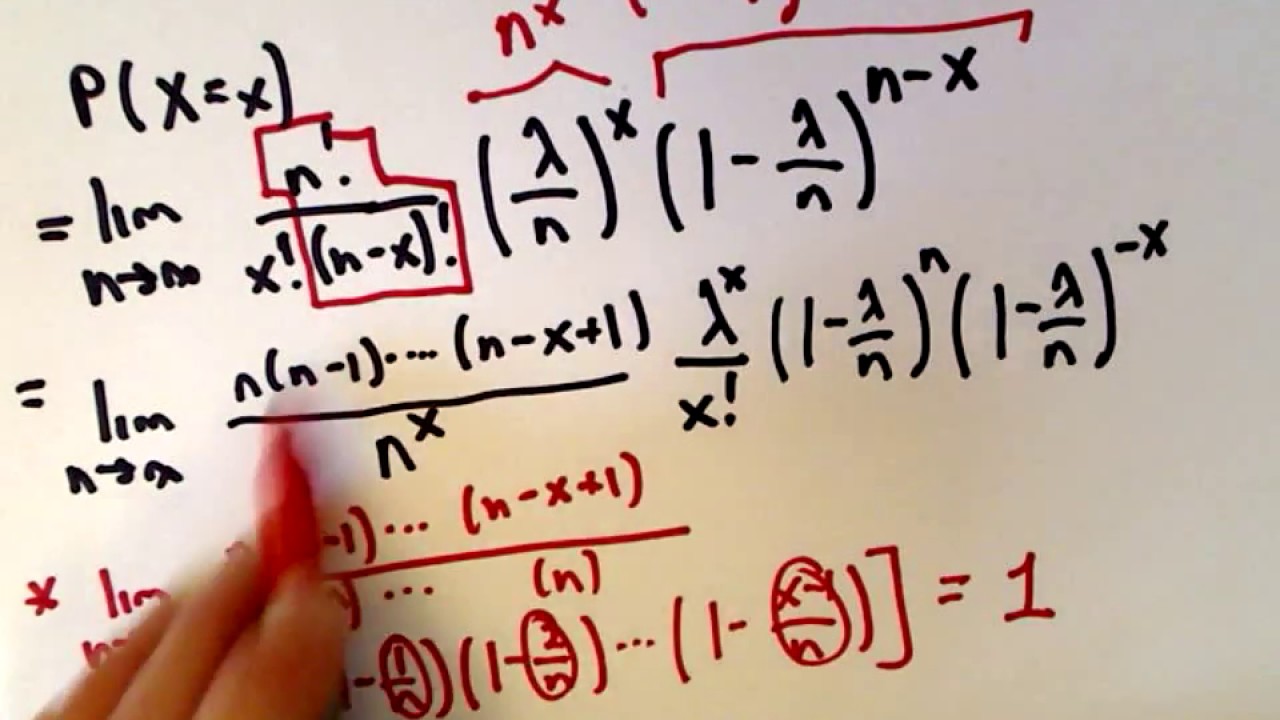 n^x
P(X=x)
= lim n→∞ n!/(x!(n-x)!) (λ/n)^x (1-λ/n)^(n-x)
= lim n→∞ n(n-1)⋯(n-x+1)/n^x λ^x/x! (1-λ/n)^n (1-λ/n)^(-x)
* lim -1)⋯(n-x+1)/⋯(n)
-1/n)(1-2/n)⋯(1-x-1/n)] = 1